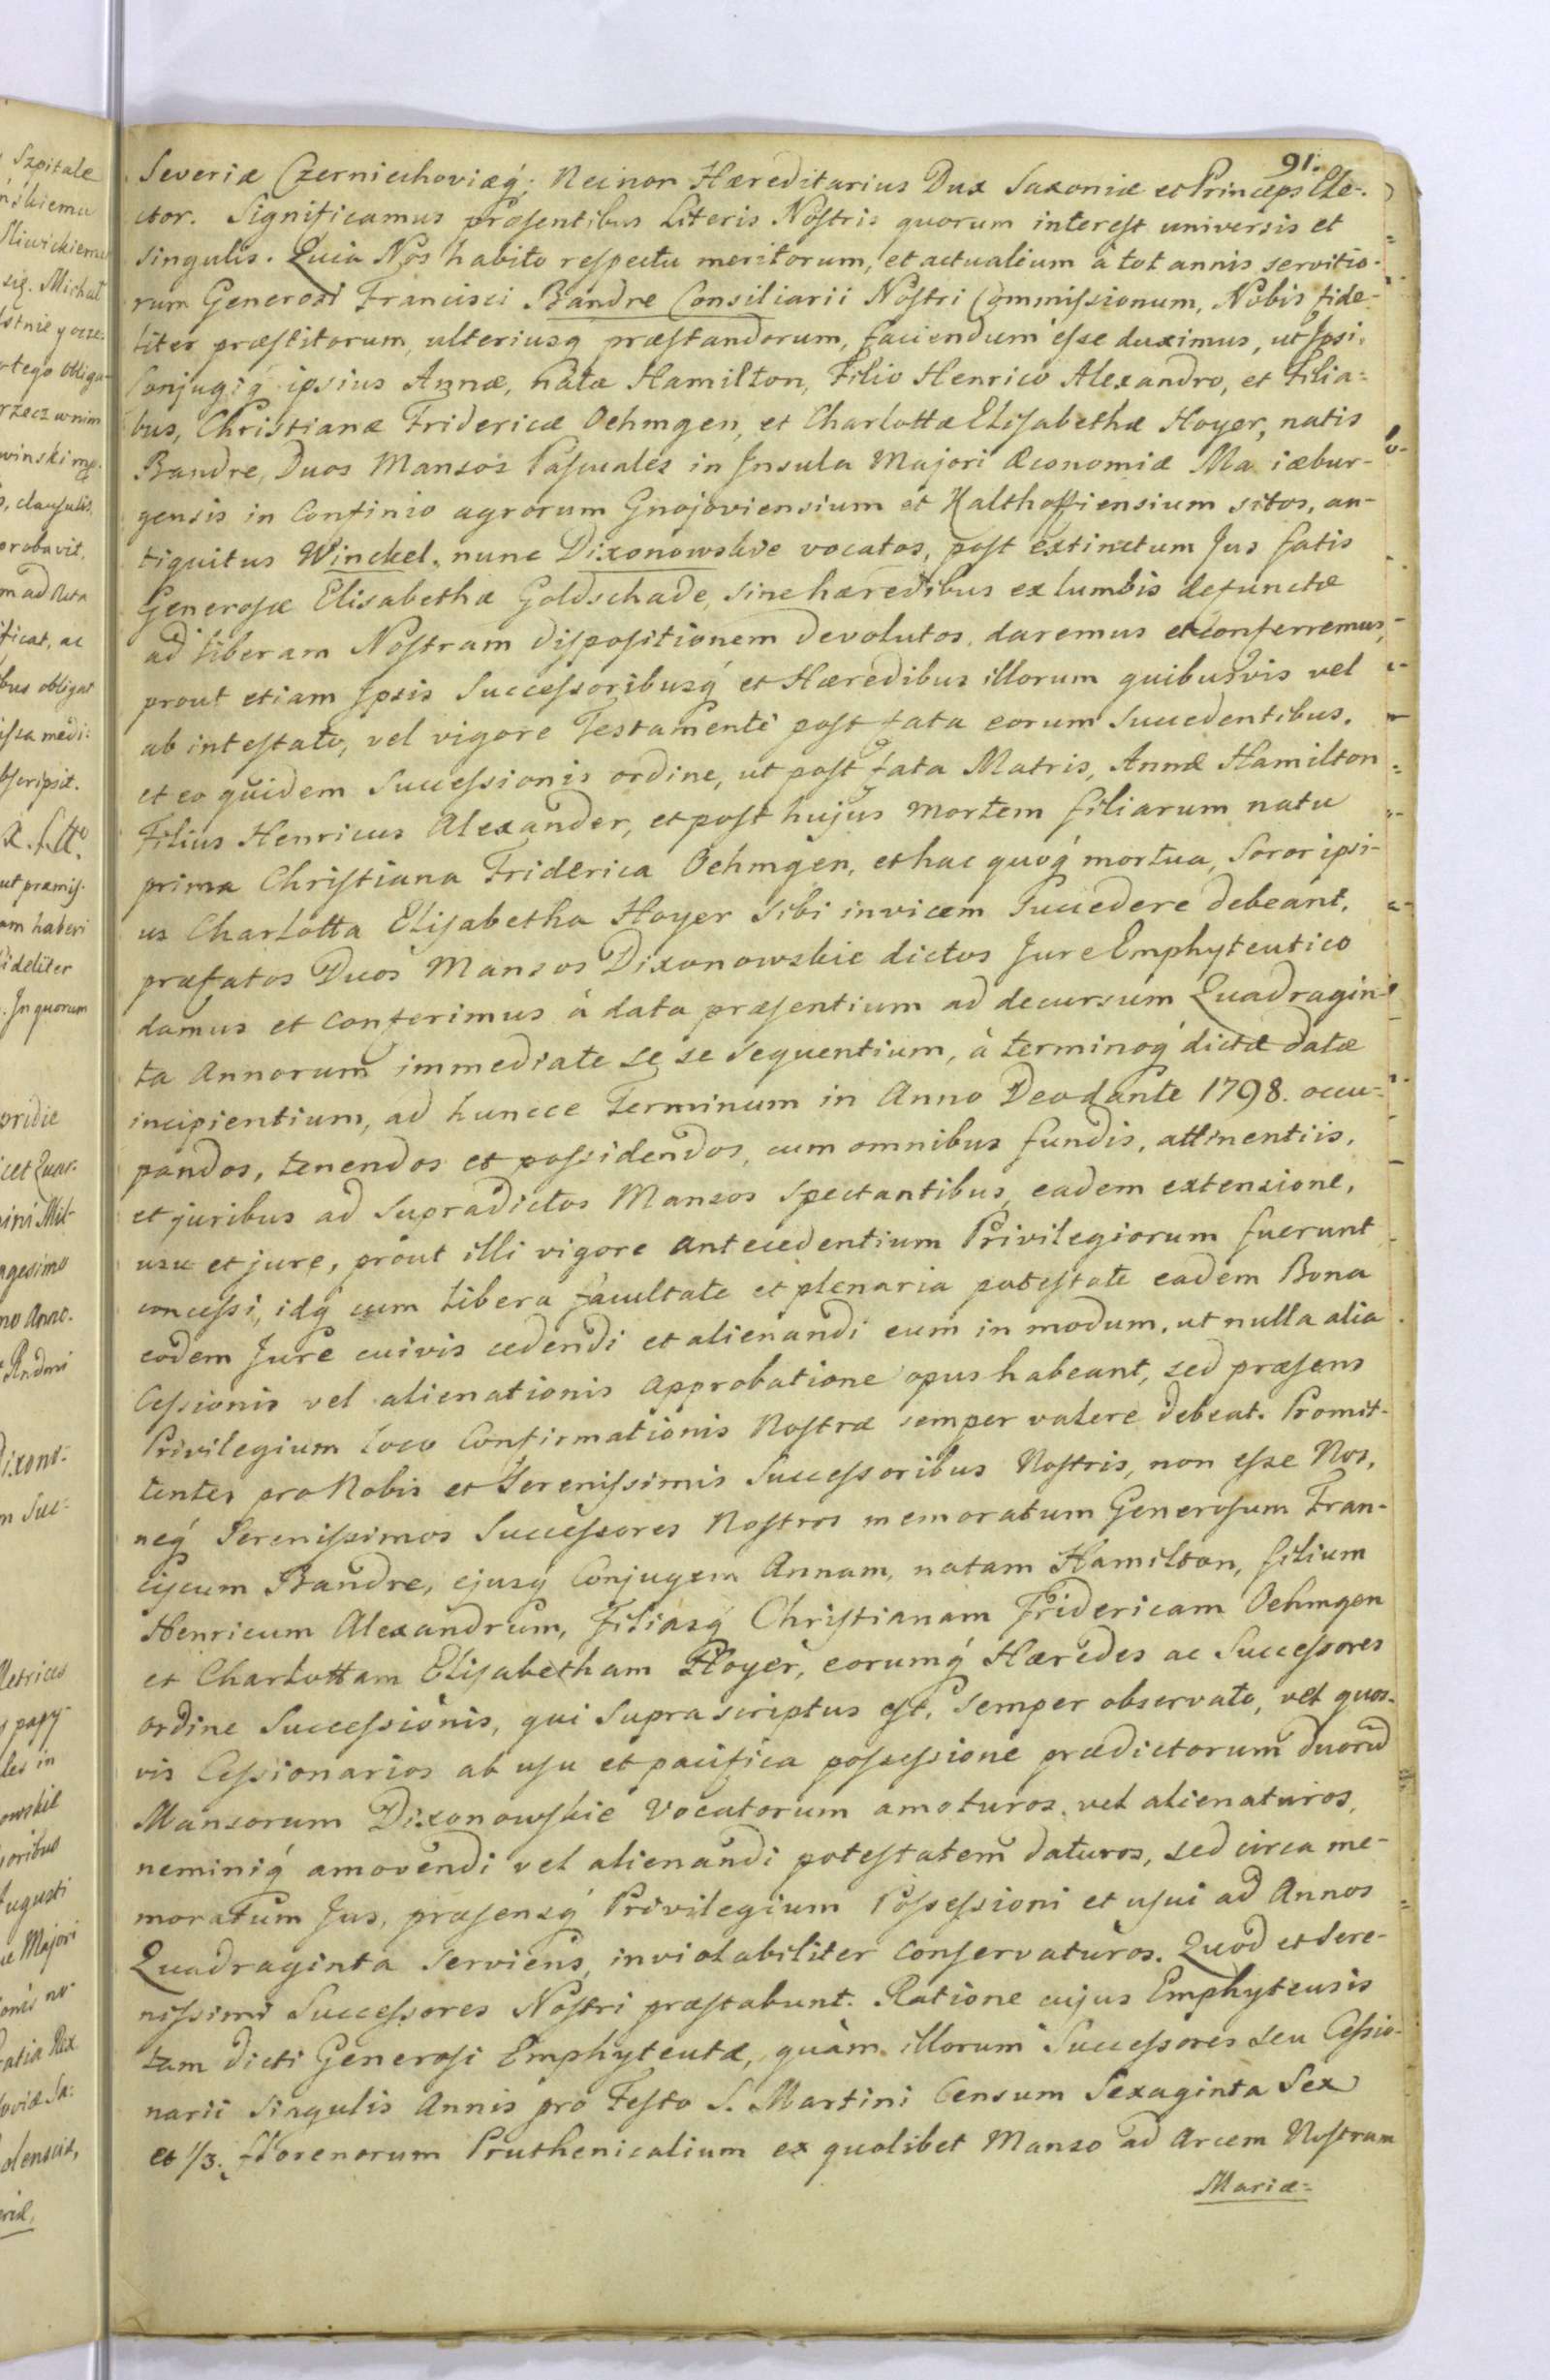 91.
Severiæ Czerniechoviæq́; Necnon Hæreditarius Dux Saxoniæ et Princeps Ele-
ctor. Significamus præsentibus Literis Nostris quorum interest universis et
singulis. Quia Nos habito respectu meritorum, et actualium à tot annis servitio-
rum Generosi Francisci Bandre Consiliarii Nostri Commissionum, Nobis fide-
liter præstitorum, ulteriusq́ præstandorum, faciendum esse duximus, ut Ipsi,
Conjugiq́ ipsius Annæ, natæ Hamilton, Filio Henrico Alexandro, et Filia-
bus, Christianæ Fridericæ Oehmgen, et Charlottæ Elisabethæ Hoyer, natis
Bandre, Duos Mansos Pascuales in Insula Majori Œconomiæ Ma iæbur-
gensis in Confinio agrorum Gnojoviensium et Kalthoffiensium sitos, an-
tiquitus Winckel, nunc Dixonowskie vocatos, post extinctum Jus fatis
Generosæ Elisabethæ Goldschade, sine hæredibus ex lumbis defunctæ
ad liberam Nostram dispositionem devolutos, daremus et conferremus,
prout etiam Ipsis Successoribusq́ et Hæredibus illorum quibusvis vel
ab intestato, vel vigore Testamenti post fata eorum succedentibus,
et eo quidem Successionis ordine, ut post fata Matris, Annæ Hamilton
Filius Henricus Alexander, et post hujus mortem filiarum natu
prima Christiana Friderica Oehmgen, et hac quoq́ mortua, Soror ipsi-
us Charlotta Elisabetha Hoyer sibi invicem succedere debeant,
præfatos Duos Mansos Dixonowskie dictos Jure Emphyteutico
damus et conferimus à data præsentium ad decursum Quadragin-
ta Annorum immediate se se sequentium, à terminoq́ dictæ datæ
incipientium, ad huncce Terminum in Anno Deo dante 1798. occu-
pandos, tenendos et possidendos, cum omnibus fundis, attinentiis,
et juribus ad supradictos Mansos spectantibus, eadem extensione,
usu et jure, prout illi vigore antecedentium Privilegiorum fuerunt
concessi, idq́ cum libera facultate et plenaria potestate eadem Bona
eodem Jure cuivis cedendi et alienandi eum in modum, ut nulla alia
Cessionis vel alienationis approbatione opus habeant, sed præsens
Privilegium loco Confirmationis Nostræ semper valere debeat. Promit-
tentes pro Nobis et Serenissimis Successoribus Nostris, non esse Nos,
neq́ Serenissimos Successores Nostros memoratum Generosum Fran-
ciscum Bandre, ejusq́ Conjugem Annam, natam Hamilton, filium
Henricum Alexandrum, Filiasq́ Christianam Fridericam Oehmgen
et Charlottam Elisabetham Hoyer, eorumq́ Hæredes ac Successores
ordine Successionis, qui supra scriptus est, semper observato, vel quos-
vis Cessionarios ab usu et pacifica possessione prædictorum duorū
Mansorum Dixonowskie vocatorum amoturos, vel alienaturos,
neminiq́ amovendi vel alienandi potestatem daturos, sed circa me-
moratum Jus, præsensq́ Privilegium Possessioni et usui ad Annos
Quadraginta serviens, inviolabiliter conservaturos. Quod et Sere-
nissimi Successores Nostri præstabunt. Ratione cujus Emphyteusis
tam dicti Generosi Emphyteutæ, quàm illorum Successores seu Cessio-
narii singulis Annis pro Festo S. Martini Censum Sexaginta Sex
et 1/3. florenorum Pruthenicalium ex quolibet Manso ad Arcem Nostram
Mariæ=